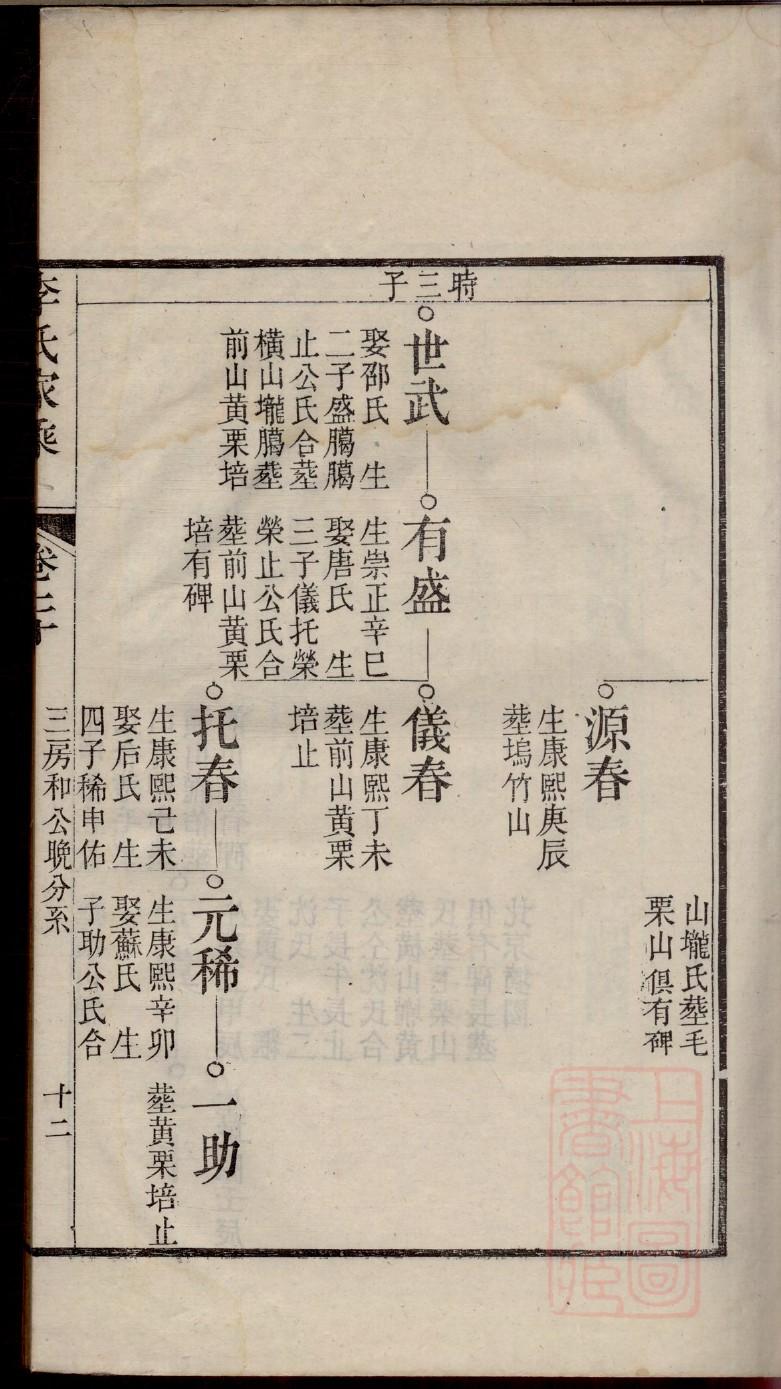 時三子
山壠氏塟毛
栗山俱有碑
源春
生康熙庚辰
塟塢竹山
世武
娶邵氏　生
二子盛騰騰
止公氏合塟
橫山壠騰塟
前山黃栗培
有盛
生崇正辛巳
娶唐氏　生
三子儀托榮
榮止公氏合
塟前山黃栗
培有碑
儀春
生康熙丁未
塟前山黃栗
培止
托春
生康熙己未
娶后氏　生
四子稀申佑
元稀
生康熙辛卯
娶蘇氏　生
子助公氏合
一助
塟黃栗培止
三房和公晚分系
十二
李氏家乘
上海圖書館藏